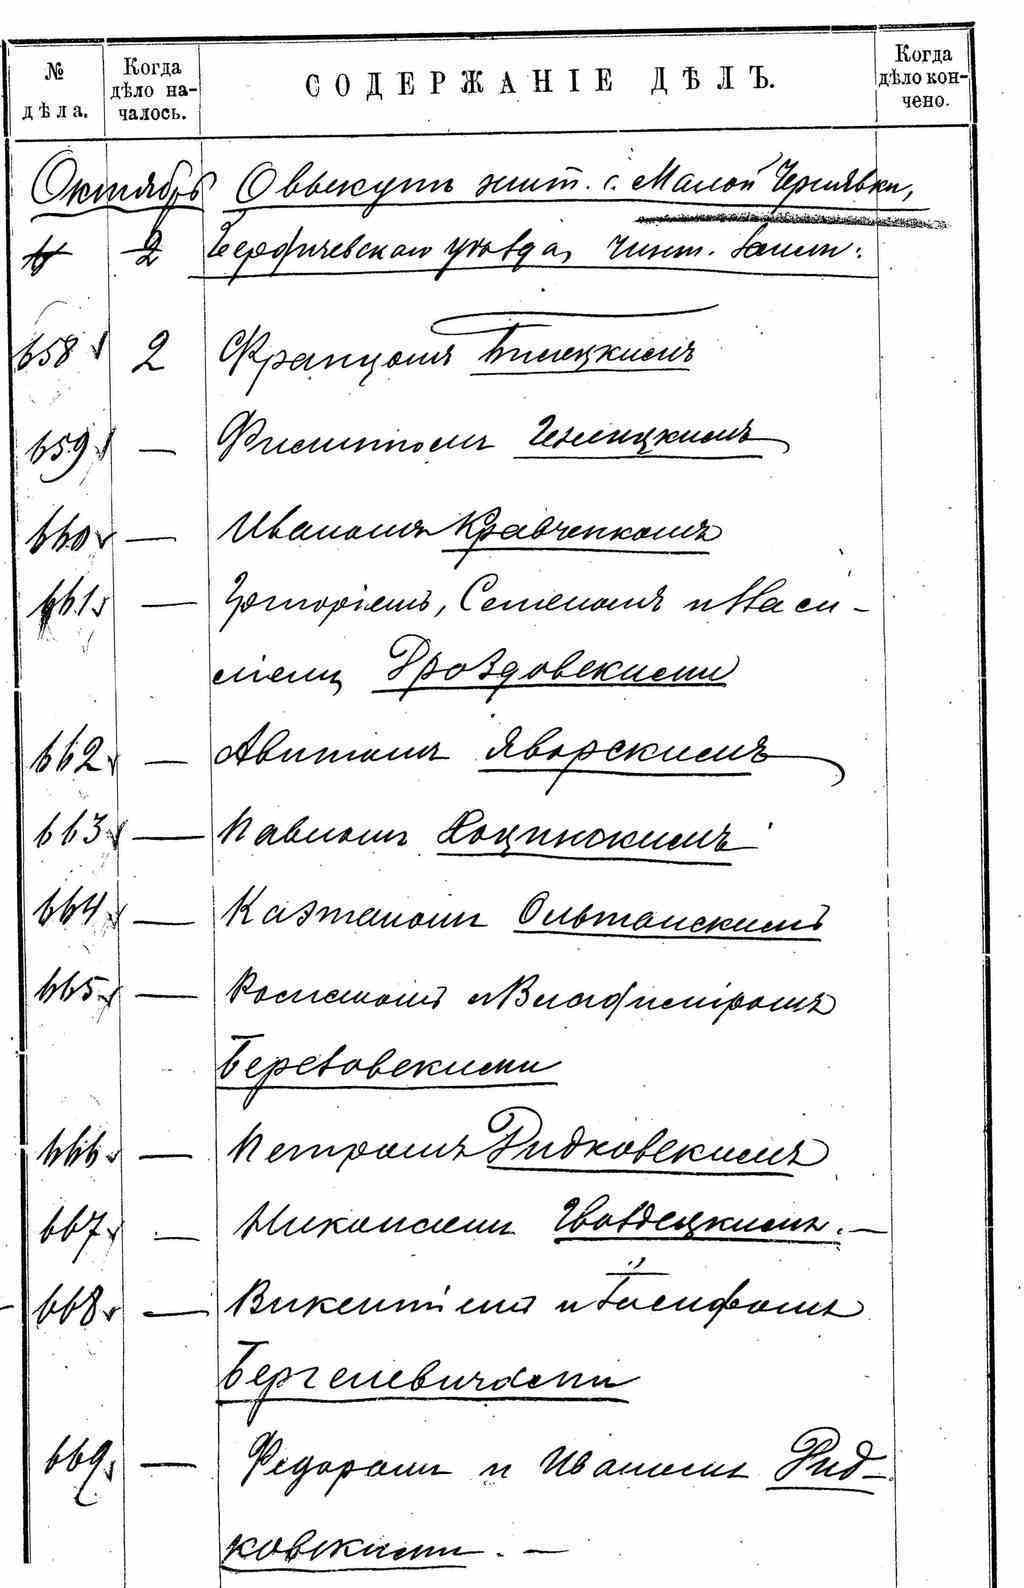 № дѣла.
Когда дѣло началось.
СОДЕРЖАНІЕ ДѢЛЪ.
Когда дѣло кончено.
Октябрь О выкупѣ жит. с. Малой Чернявки,
2 Бердичевскаго уѣзда, чинш. земли:
658 2 Францомъ Билецкимъ
659 — Филиппомъ
660 — Иваномъ Кравченкомъ
661 — Григоріемъ, Семеномъ и Васи-
ліемъ Дроздовскими
662 — Антономъ Яворскимъ
663 — Павломъ
664 — Каэтаномъ Ольшанскимъ
665 — Романомъ и Владиміромъ
Березовскими
666 — Петромъ Ридковскимъ
667 — Николаемъ Гвоздецкимъ. —
668 — Викентіемъ и Іосифомъ
Бергелевичами
669 — Федоромъ и Иваномъ Рид-
ковскими. —